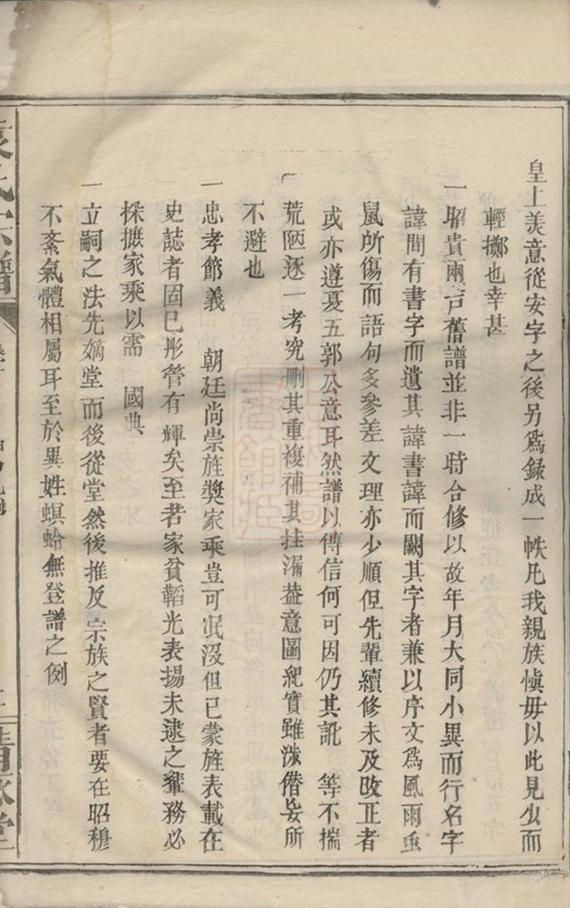 皇上美意從安字之後另爲錄成一帙凡我親族愼毋以此見少而
輕擲也幸甚
一昭貴兩戸舊譜並非一時合修以故年月大同小異而行名字
諱間有書字而遺其諱書諱而闕其字者兼以序文爲風雨虫
鼠所傷而語句多參差文理亦少順但先輩續修未及改正者
或亦遵夏五郭公意耳然譜以傳信何可因仍其訛 等不揣
荒陋逐一考究刪其重複補其挂漏葢意圖紀實雖涉僭妄所
不避也
一忠孝節義 朝廷尚崇旌獎家乘豈可泯沒但已蒙旌表載在
史誌者固已彤管有輝矣至若家貧韜光表揚未逮之輩務必
採摭家乘以需 國典
一立嗣之法先嫡堂而後從堂然後推及宗族之賢者要在昭穆
不紊氣體相屬耳至於異姓螟蛉無登譜之例
袁氏宗譜